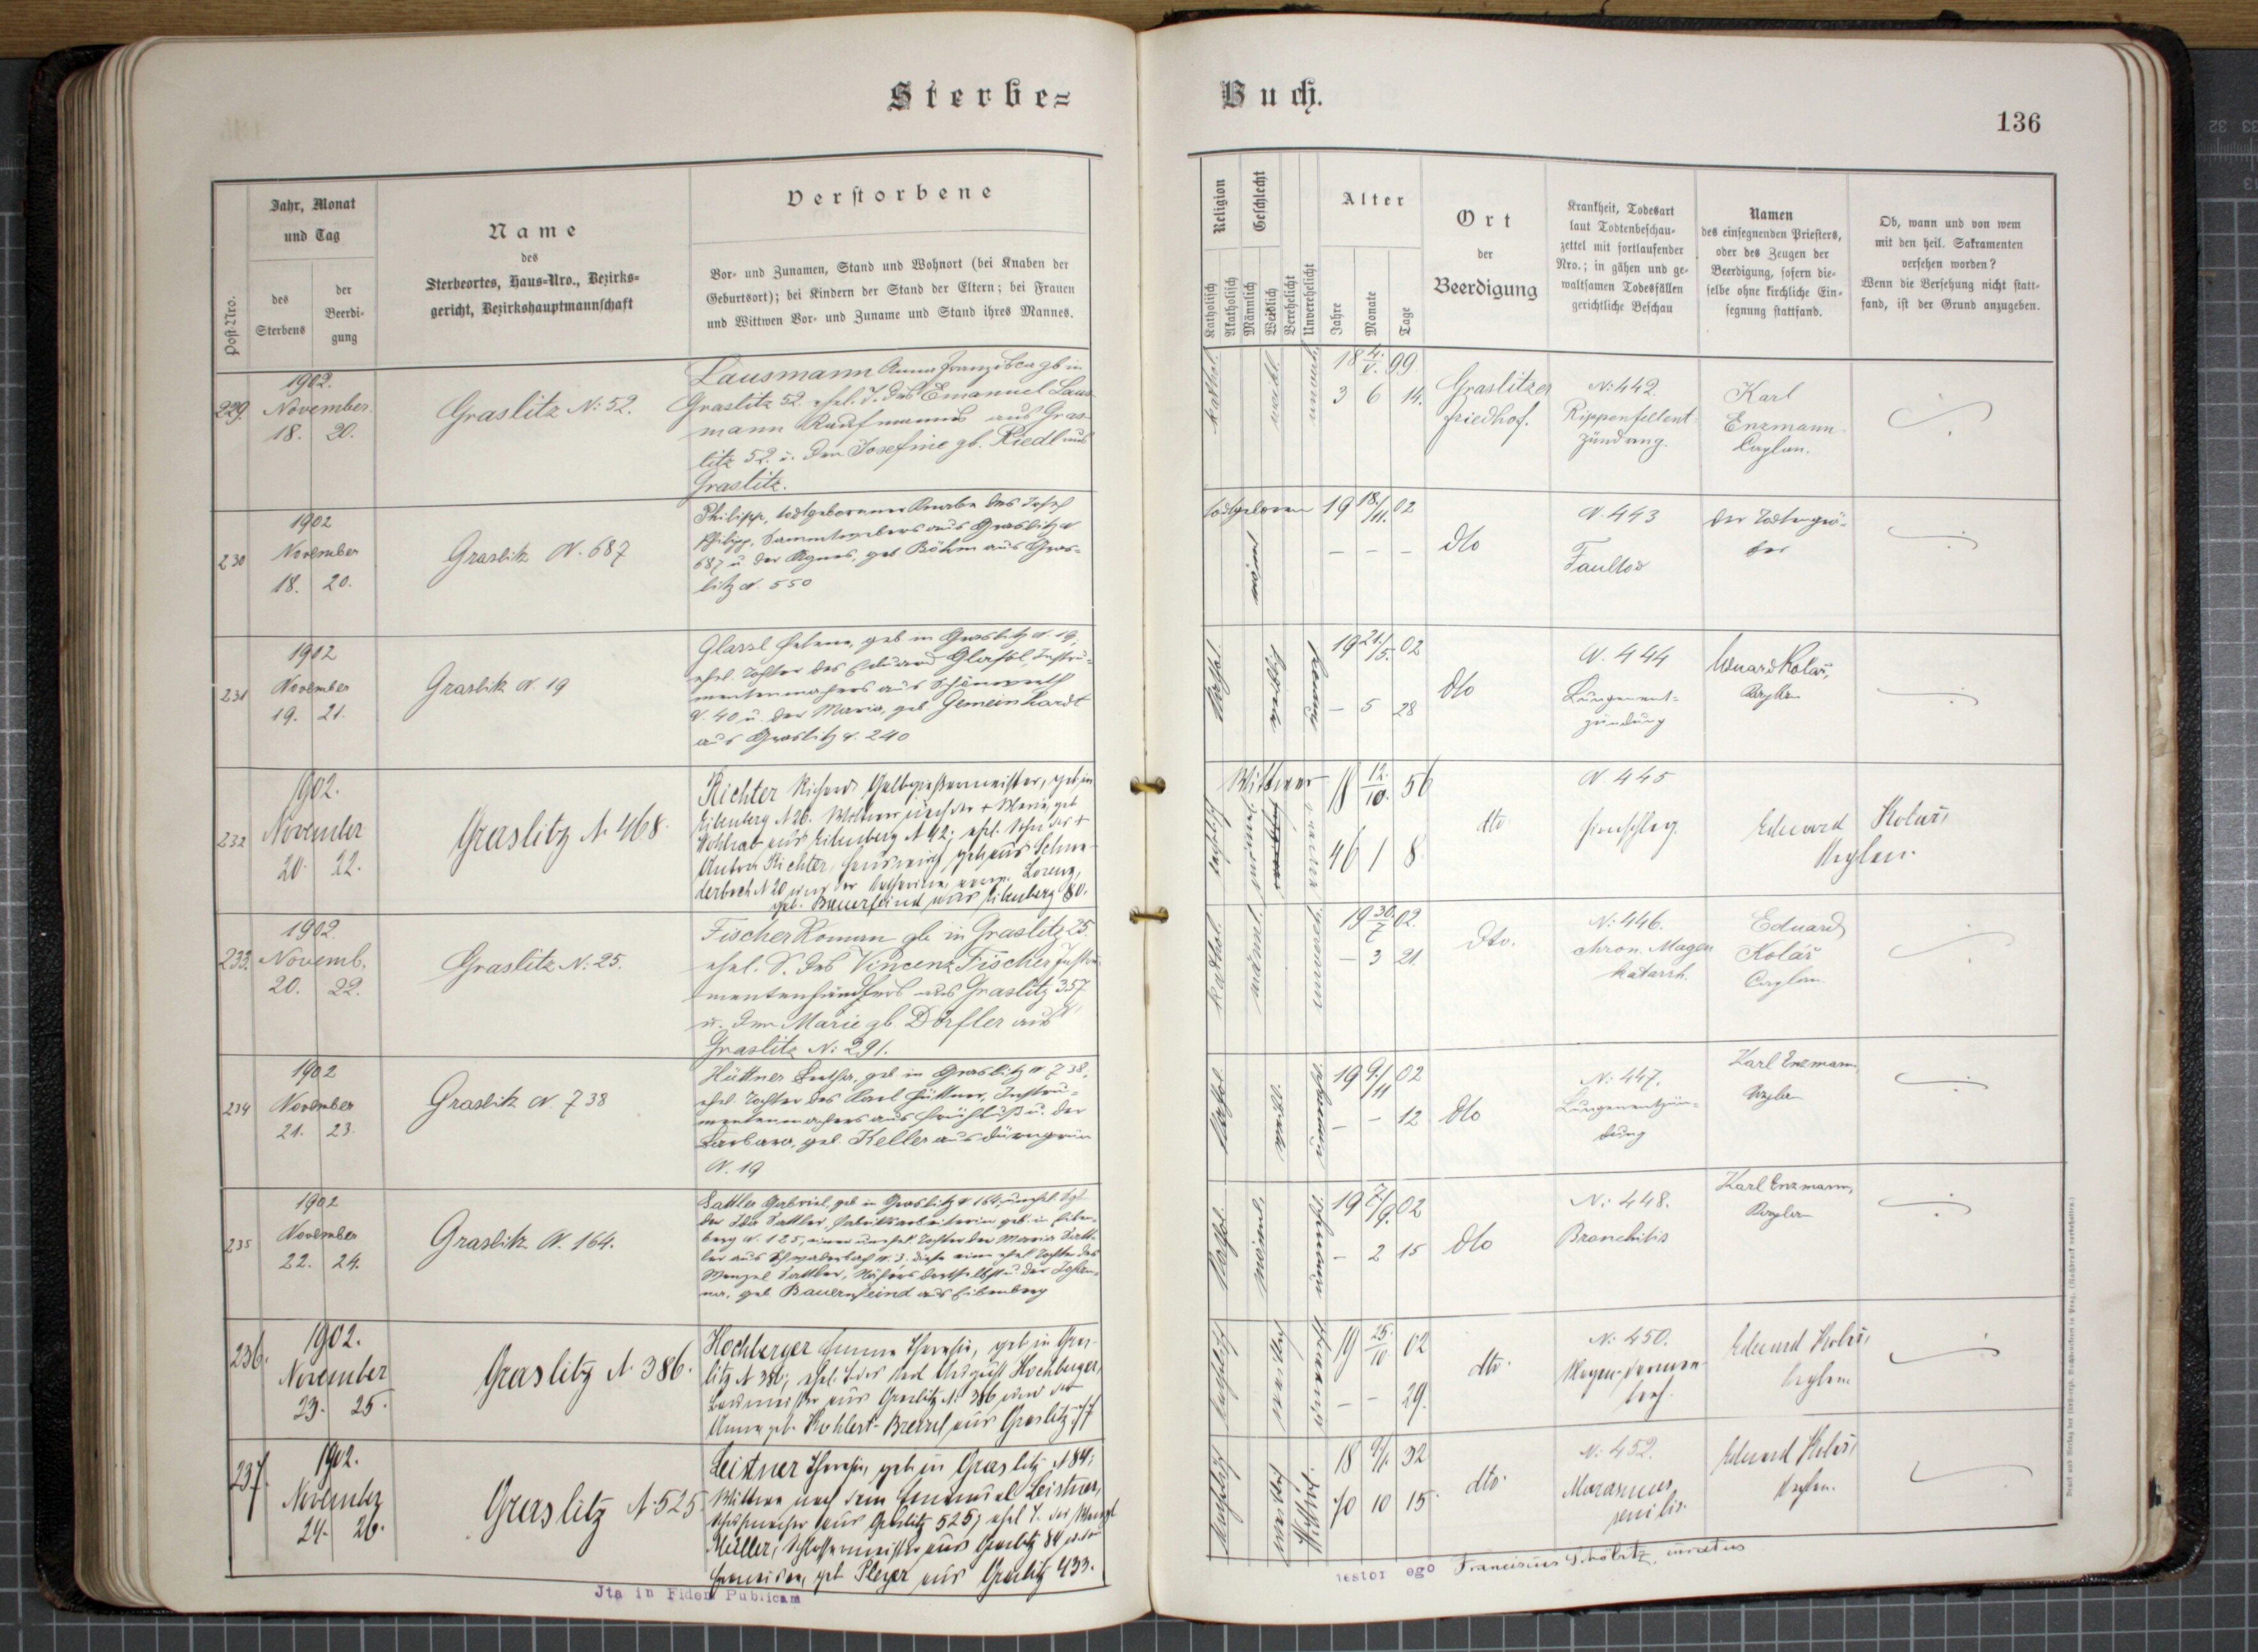 Sterbe=
Buch.
136
Post-Nro.
Jahr, Monat
und Tag
des
Sterbens
der
Beerdi-
gung
Name
des
Sterbeortes, Haus-Nro., Bezirks-
gericht, Bezirkshauptmannschaft
Verstorbene
Vor- und Zunamen, Stand und Wohnort (bei Knaben der
Geburtsort); bei Kindern der Stand der Eltern; bei Frauen
und Wittwen Vor- und Zuname und Stand ihres Mannes.
Religion
Katholisch
Akatholisch
Geschlecht
Männlich
Weiblich
Verehelicht
Unverehelicht
Alter
Jahre
Monate
Tage
Ort
der
Beerdigung
Krankheit, Todesart
laut Todtenbeschau-
zettel mit fortlaufender
Nro.; in gähen und ge-
waltsamen Todesfällen
gerichtliche Beschau
Namen
des einsegnenden Priesters,
oder des Zeugen der
Beerdigung, sofern die-
selbe ohne kirchliche Ein-
segnung stattfand.
Ob, wann und von wem
mit den heil. Sakramenten
versehen worden?
Wenn die Versehung nicht statt-
fand, ist der Grund anzugeben.
229.
1902.
November.
18. 20.
Graslitz N: 52.
Lausmann Anna Franziska gb in
Graslitz 52. ehel. T. des Emanuel Laus-
mann Kaufmanns aus Gras-
litz 52. u. der Josefine gb. Riedl aus
Graslitz.
kathol.
weibl.
18 4./V. 99
3 6 14.
Graslitzer
Friedhof.
N: 442.
Rippenfellent-
zündung.
Karl
Enzmann
Caplan.
230
1902
November
18. 20.
Graslitz N. 687
Philipp, todtgeborener Knabe des Josef
Philipp, aus Graslitz N
687 u. der Agnes, geb Böhm aus Gras-
litz N. 550
todtgeboren
19 18./11. 02
– – –
dto
N. 443
Faultod
der Todtengrä-
ber
231
1902
November
19. 21.
Graslitz N. 19
Glassl Helene, geb in Graslitz N. 19,
ehel. Tochter des Eduard Glassl, Instru-
mentenmachers aus Schönwerth
N. 40 u. der Maria, geb. Gemeinhardt
aus Graslitz N. 240
Kathol.
weiblich
19 21./5. 02
– 5 28
dto
N. 444
Lungenent-
zündung
Eduard Kolář,
Kaplan
232
1902.
November
20. 22.
Graslitz N 468.
Richter Richard Gelbgießermeister, geb. in
Eibenberg N 26. Wittwer nach der + Marie, geb
aus Eibenberg N 42; ehel. Sohn des +
Anton Richter, geb. aus Schwa-
derbach N 20 und der Lorenz,
geb. Bauerfeind aus Eibenberg 80.
katholisch
Wittwer
männl.
18 12./10. 56
46 1 8
dto
N 445
Hirnschlag
Eduard Kolář,
Kaplan.
233.
1902.
Novemb.
20. 22.
Graslitz N: 25.
Fischer Roman gb in Graslitz 25
ehel. S. des Vincenz Fischer Instru-
mentenhändlers aus Graslitz 357
u. der Marie gb Dörfler aus
Graslitz N: 291.
kathol.
männl.
19 30./7 02.
– 3 21
dto.
N: 446.
chron. Magen
katarrh
Eduard
Kolář
Caplan
234
1902
November
21. 23.
Graslitz N. 738
Hüttner Bertha, geb in Graslitz N 738,
ehel. Tochter des Karl Hüttner, Instru-
mentenmachers aus Frühbuß u. der
Barbara, geb Keller aus Dürngrün
N. 19
Kathol.
weibl.
19 9./11 02
– – 12
dto
N: 447.
Lungenentzün-
dung
Karl Enzmann,
Kaplan
235
1902
November
22. 24.
Graslitz N. 164.
Sattler Gabriel, geb in Graslitz N. 164, unehel. Sohn
der Ida Sattler, Fabriksarbeiterin geb. in Eiben-
berg N. 125, einer unehel. Tochter der Maria Satt-
ler aus Schwaderbach N. 3. diese eine ehel Tochter des
Wenzel Sattler, daselbst u. der Johan-
na, geb Bauernfeind aus Eibenberg
Kathol.
männl.
19 7./9. 02
– 2 15
dto
N: 448.
Bronchitis
Karl Enzmann,
Kaplan
236.
1902.
November
23. 25.
Graslitz N. 386.
Hochberger Emma Theresia, geb in Gras-
litz N 386; ehel. T. des Karl August Hochberger,
Baumeister aus Graslitz N. 386 und der
Anna geb. Kohlert-Breinl aus Graslitz
katholisch
weiblich
19 25./10 02
– – 29.
dto.
N: 450.
Eduard Kolář,
Caplan
237.
1902.
November
24. 26.
Graslitz N: 525
Leistner Theresia, geb in Graslitz N 84;
Wittwe nach dem Emanuel Leistner,
Schuhmacher aus Graslitz 525, ehel T. des Wenzl
Müller, Schlossermeister aus Graslitz 84 und der
Franziska, geb Pleyer aus Graslitz 433.
katholisch
weiblich
Wittwe
18 9./1. 32
70 10 15.
dto.
N: 452.
Marasmus
senilis.
Eduard Kolář,
Kaplan.
Jta in Fidem Publicam
testor ego Franciscus Schöbitz, curatus